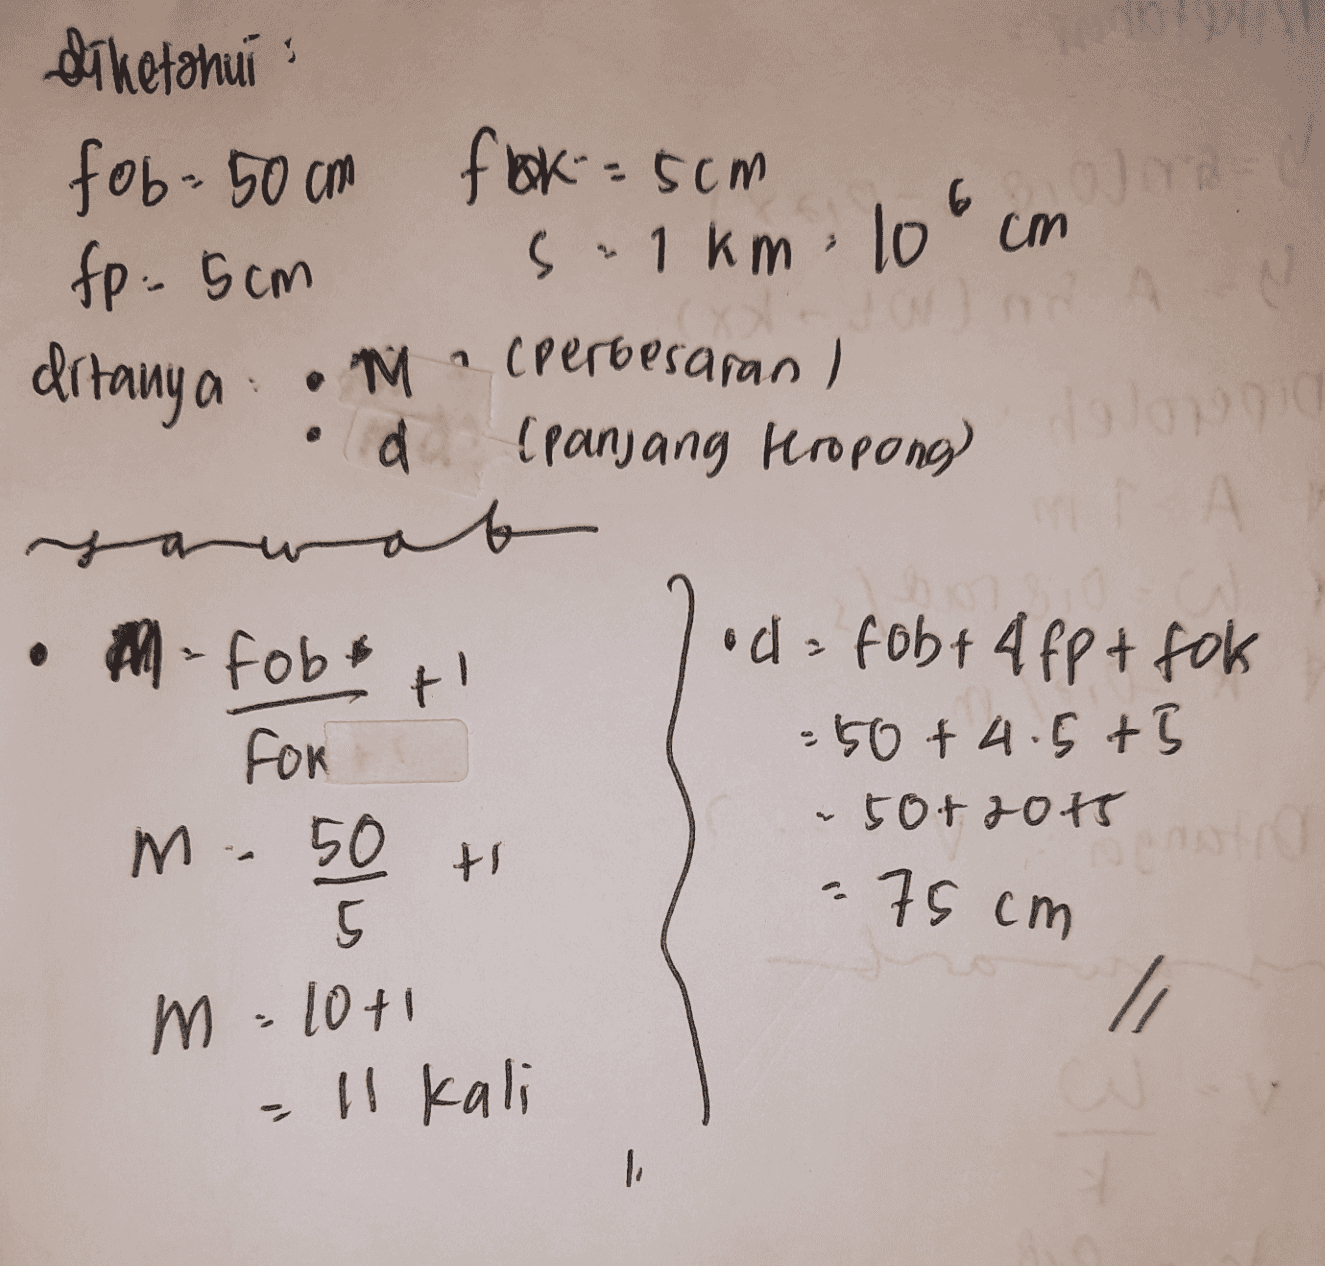 diketahui :
fob = 50 cm fok = 5cm
fp = 5cm s = 1 km = 10⁶ cm
ditanya : • M = (perbesaran)
• d (panjang teropong)
jawab
• M = fob / fok + 1
M = 50 / 5 + 1
M = 10 + 1
= 11 kali
• d = fob + 4 fp + fok
= 50 + 4.5 + 5
= 50 + 20 + 5
= 75 cm